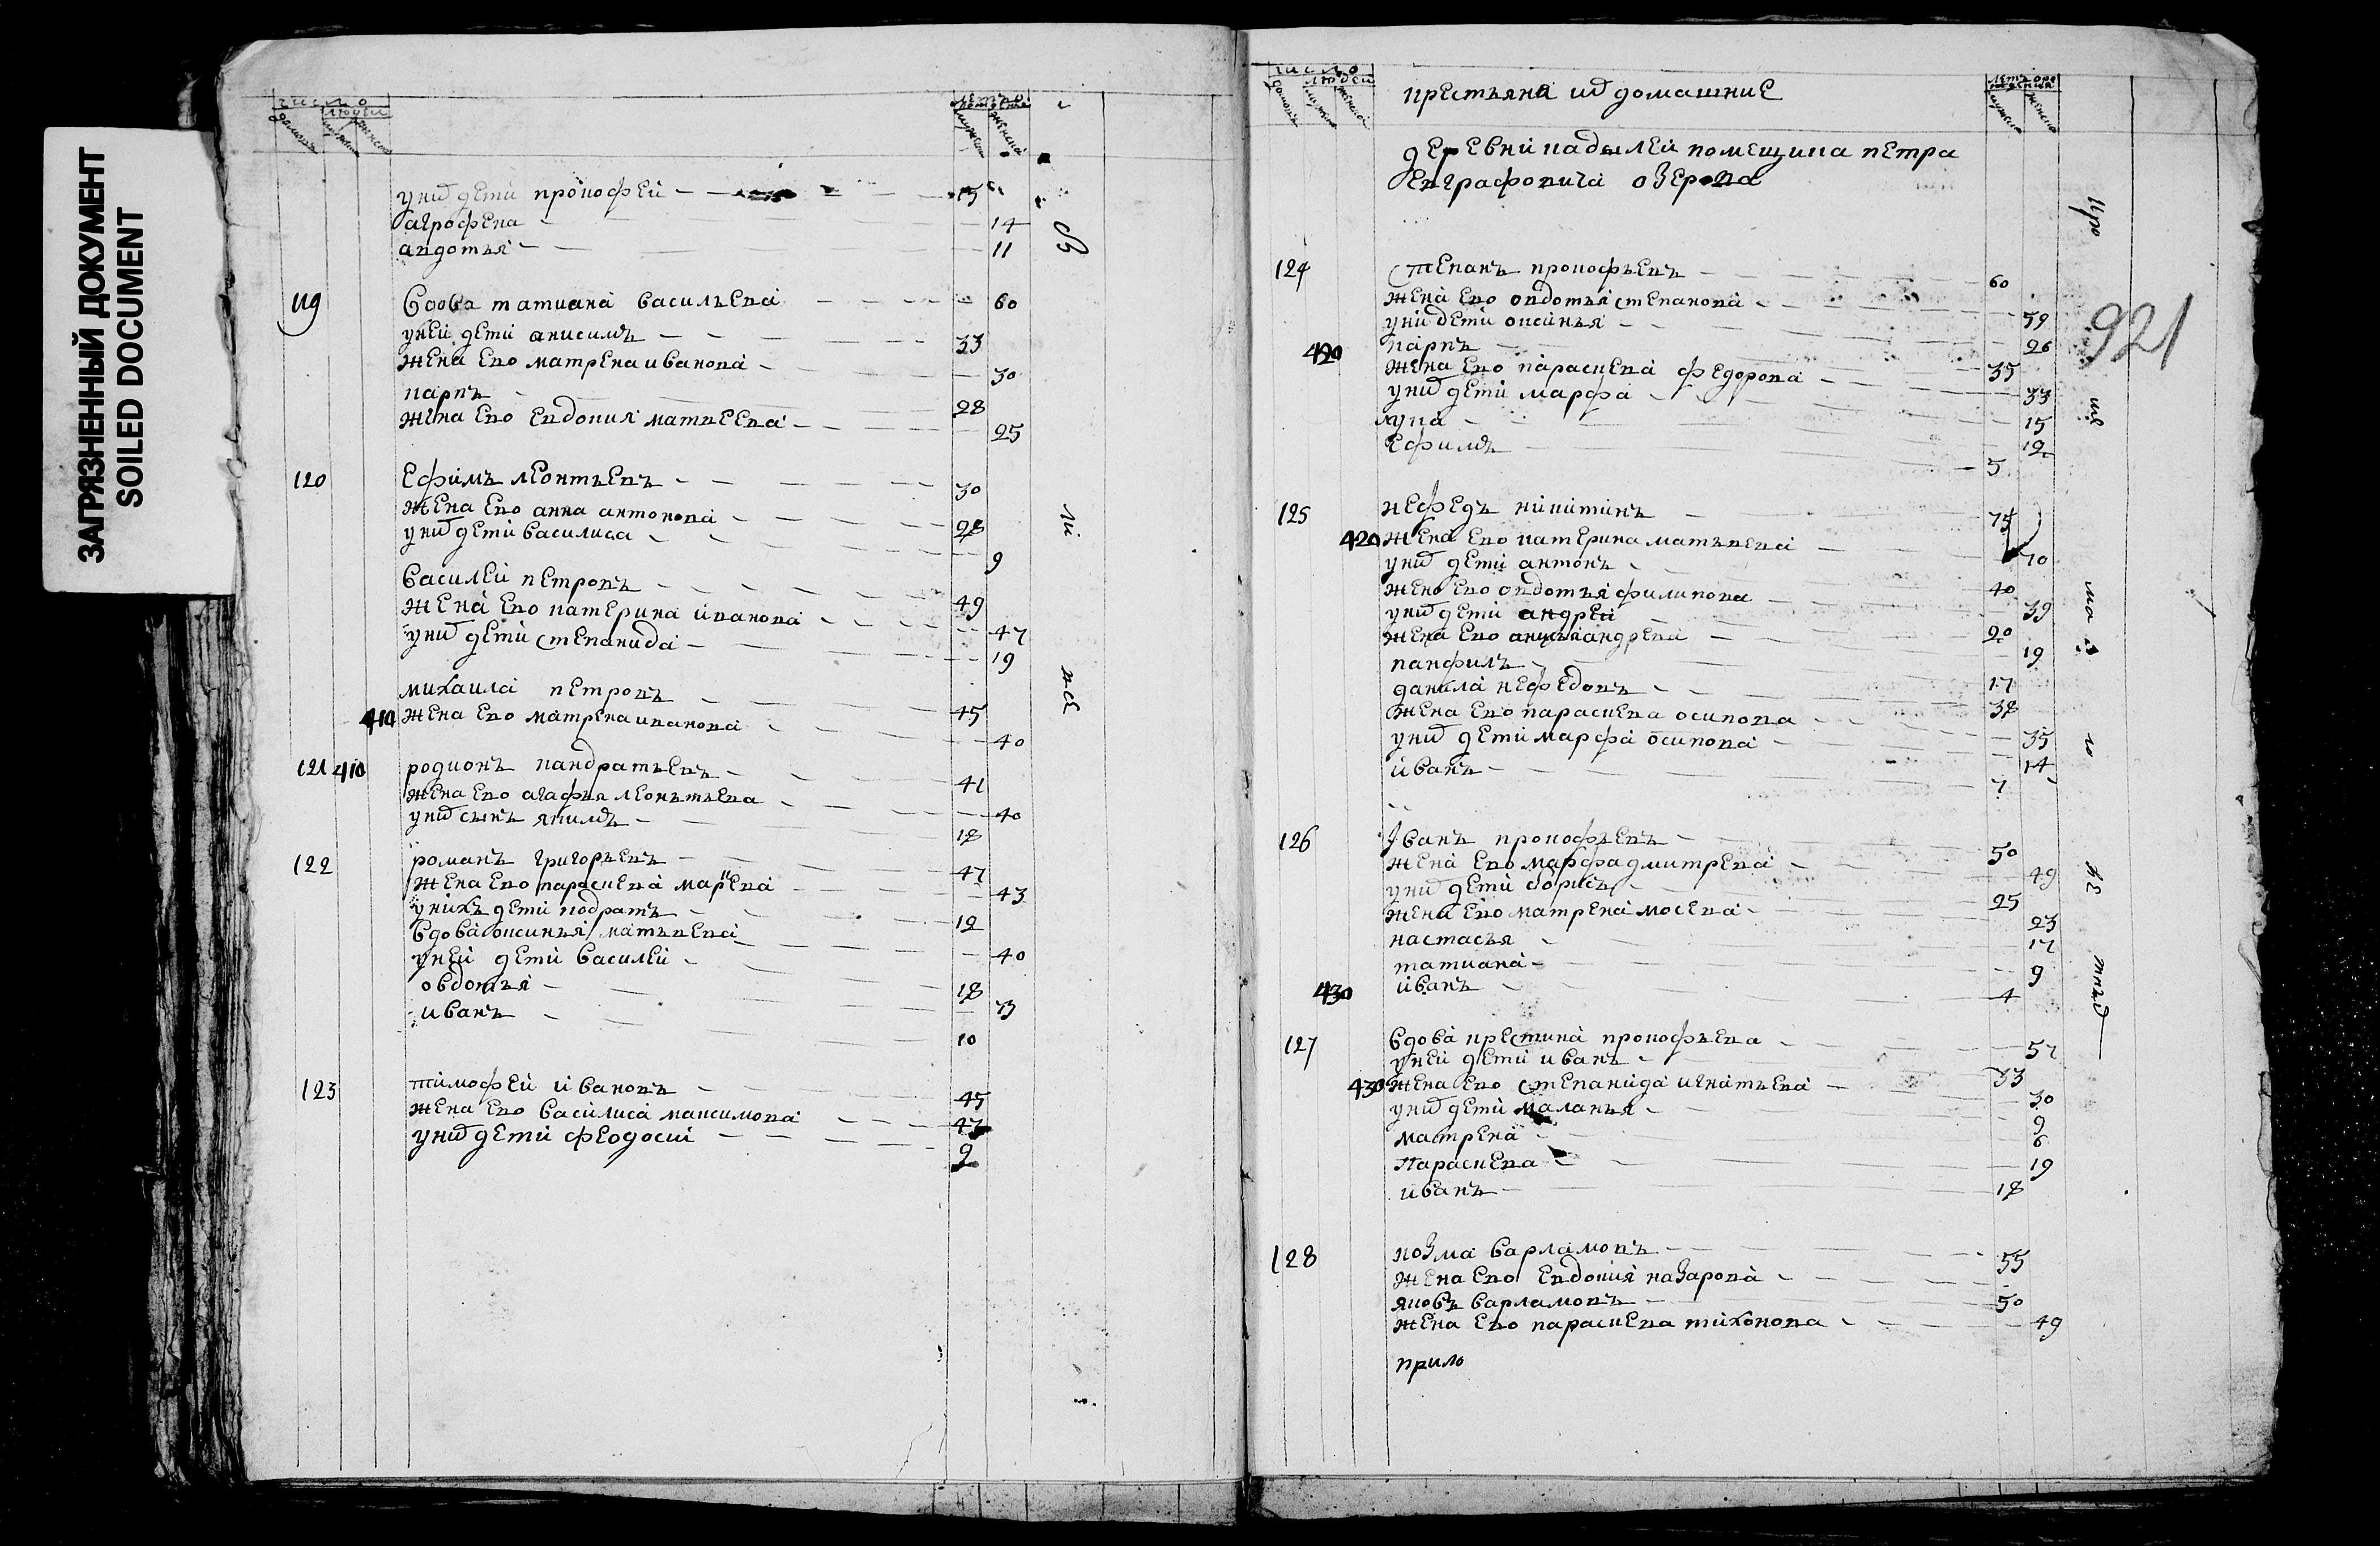 ЗАГРЯЗНЕННЫЙ ДОКУМЕНТ
SOILED DOCUMENT
число
людей
у них дети прокофей 15
агрофена 14
авдотья 11
119 вдова татиана васильева 60
у ней дети анисимъ 33
жена ево матрена иванова 30
карпъ 28
жена ево евдокия матвеева 25
120 ефимъ леонтьевъ 30
жена ево анна антонова 28
у них дети василиса 9
василей петровъ 49
жена ево катерина иванова 47
у них дети степанида 19
михаила петровъ 45
414 жена ево матрена иванова 40
121 410 родионъ кандратьевъ 41
жена ево агафья леонтьева 40
у них сынъ якимъ 18
122 романъ григорьевъ 47
жена ево параскева 43
у нихъ дети кодратъ 12
вдова оксинья матвева 40
у ней дети василей 18
овдотья 13
иванъ 10
123 тимофей ивановъ 45
жена ево василиса максимова 47
у них дети феодосий 9
ли
же
число
людей
крестьяна их домашние
деревни кадылей помещика петра
евграфовича озерова
124 степанъ прокофьевъ 60
жена ево овдотья степанова 59
у них дети оксинья 26
420 карпъ 35
жена ево параскева федорова 33
у них дети марфа 15
лука 12
ефимъ 5
125 нефедъ никитинъ 75
420 жена ево катерина матвева 70
у них дети антонъ 40
жена ево овдотья филипова 39
у них дети андрей 20
жена ево андрева 19
панфилъ 17
данила нефедовъ 38
жена ево параскева осипова 35
у них дети марфа осипова 14
иванъ 7
126 иванъ прокофьевъ 50
жена ево марфа дмитрева 49
у них дети борисъ 25
жена ево матрена мосева 23
настасья 17
татиана 9
430 иванъ 4
127 вдова крестина прокофьева 57
у ней дети иванъ 33
430 жена ево степанида игнатьева 30
у них дети маланья 9
матрена 6
параскева 19
иванъ 18
128 козма варламовъ 55
жена ево евдокия назарова
яковъ варламовъ 50
жена ево параскева тихонова 49
прило
921